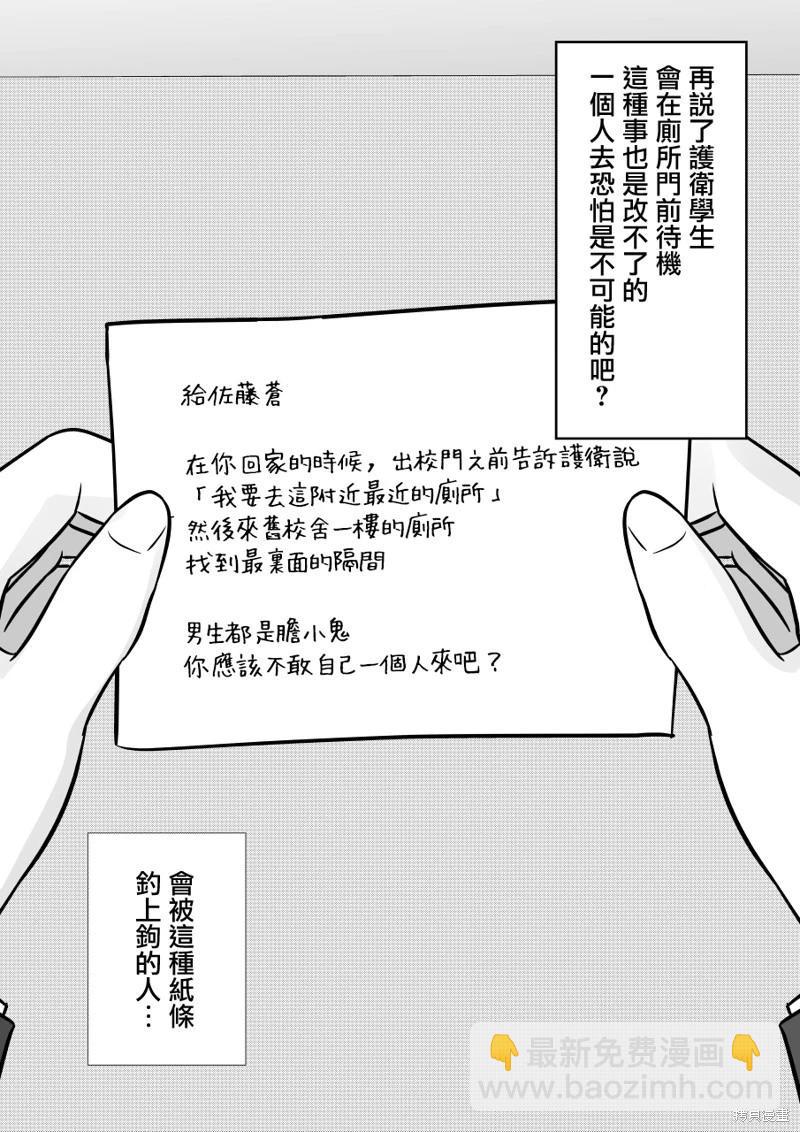 再説了護衛學生
會在廁所門前待機
這種事也是改不了的
一個人去恐怕是不可能的吧？
給佐藤蒼
在你回家的時候，出校門之前告訴護衛說
「我要去這附近最近的廁所」
然後來舊校舍一樓的廁所
找到最裏面的隔間
男生都是膽小鬼
你應該不敢自己一個人來吧？
會被這種紙條
釣上鉤的人…
👇最新免費漫画👇
www.baozimh.com
拷貝漫畫